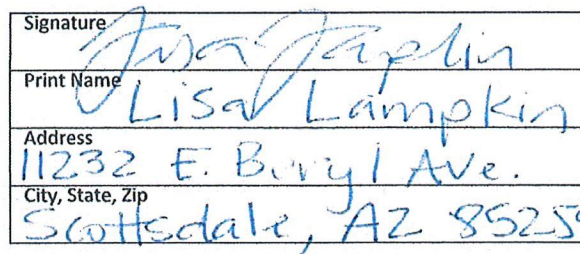 Signature
Lisa Lampkin
Print Name
Lisa Lampkin
Address
11232 E. Beryl Ave.
City, State, Zip
Scottsdale, AZ 85259